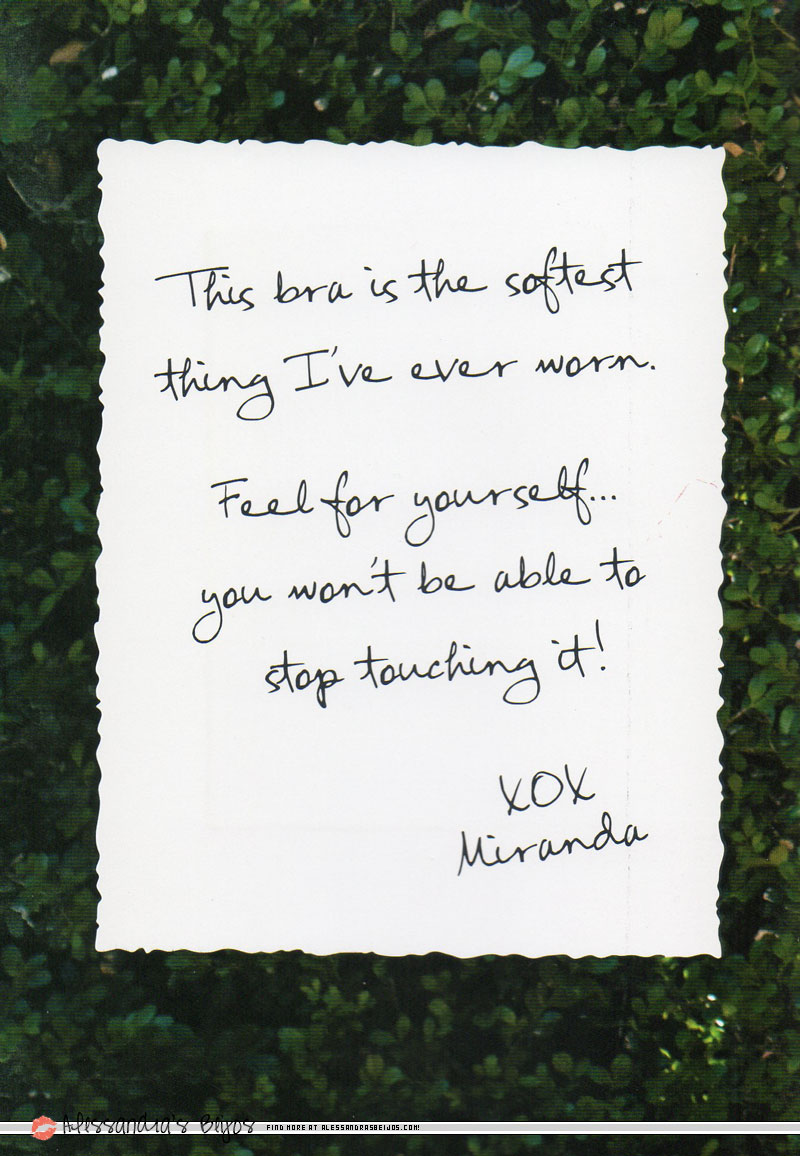 This bra is the softest
thing I've ever worn.
Feel for yourself...
you won't be able to
stop touching it!
XOX
Miranda
Alessandra's Beijos FIND MORE AT ALESSANDRASBEIJOS.COM!